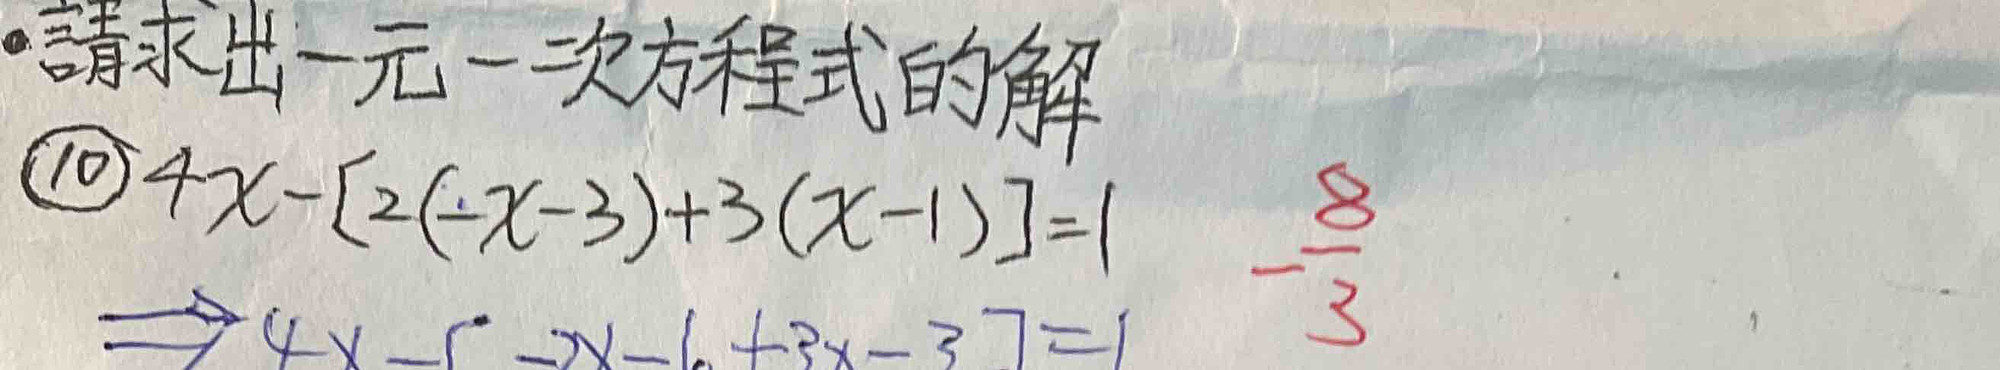 •請求出一元一次方程式的解
⑩4x-[2(-x-3)+3(x-1)]=1
-8/3
⇒4x-[-2x-6+3x-3]=1